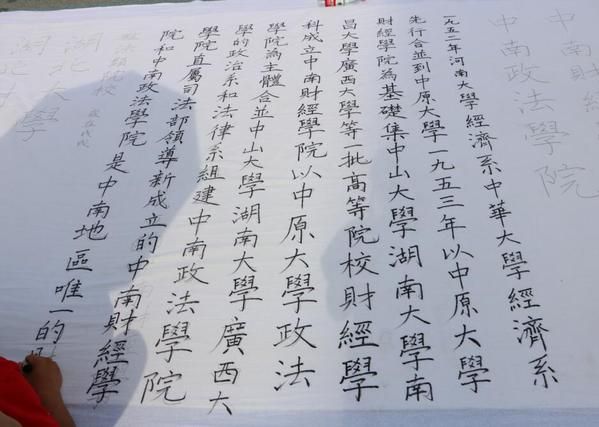 中南財經
中南政法學院
一九五二年河南大學經濟系中華大學經濟系
先行合並到中原大學一九五三年以中原大學
財經學院為基礎集中山大學湖南大學南
昌大學廣西大學等一批高等院校財經學
科成立中南財經學院以中原大學政法
學院為主體合並中山大學湖南大學廣西大
學的政治系和法律系組建中南政法學院
學院直屬司法部領導新成立的中南財經學
院和中南政法學院是中南地區唯一的
院校
湖北大學
湖北大學